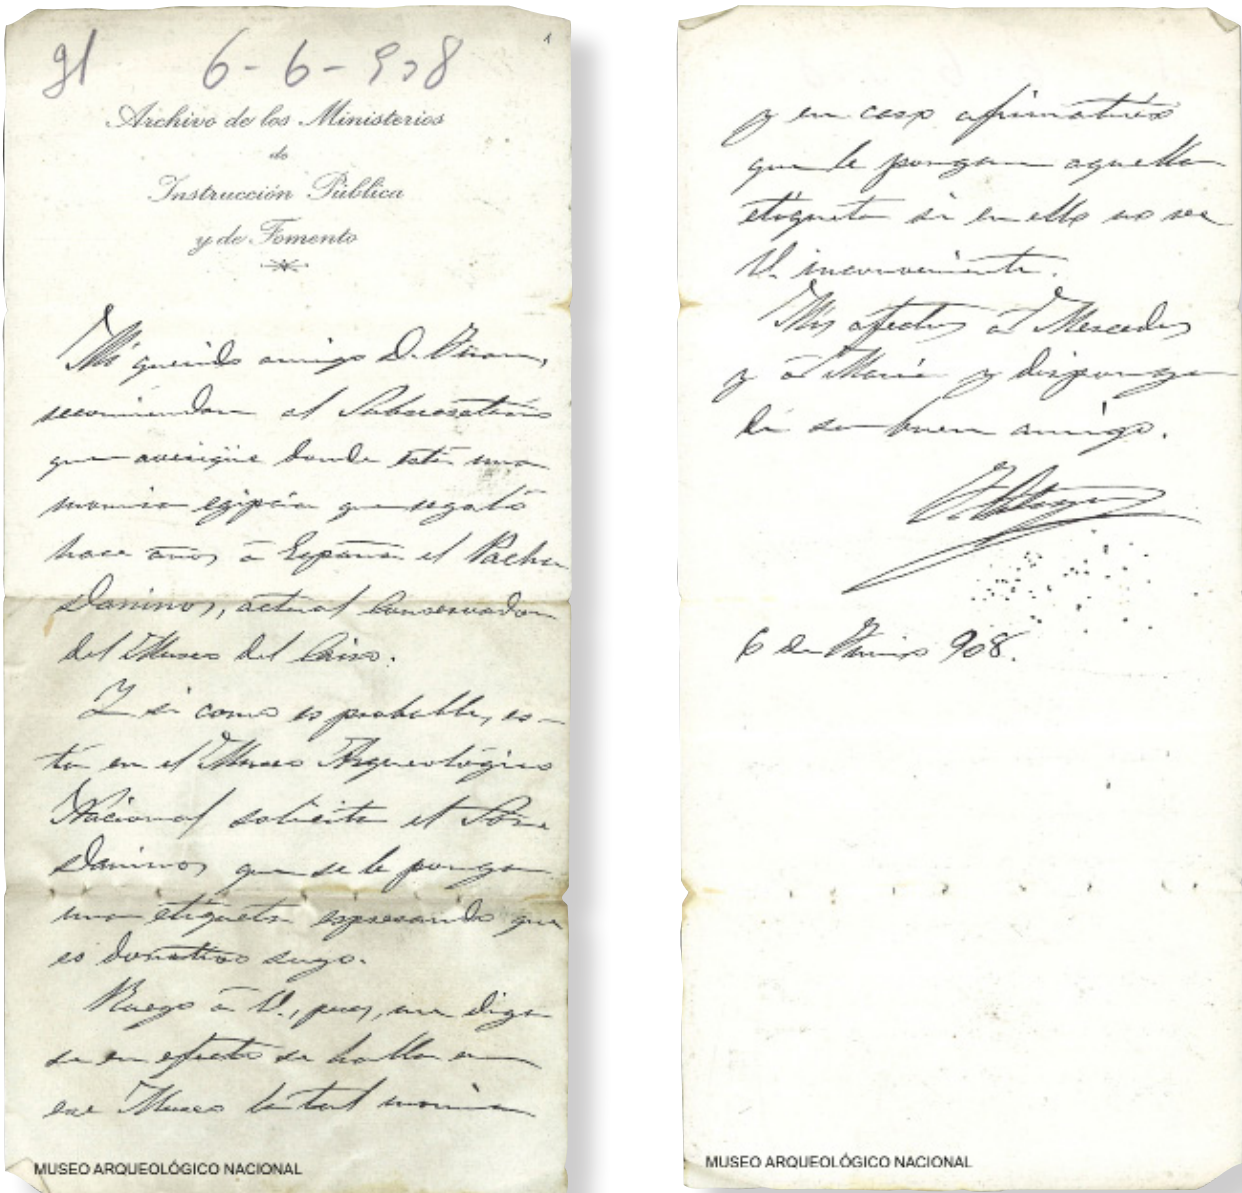 91 6-6-908
1
Archivo de los Ministerios
de
Instrucción Pública
y de Fomento
Mi querido amigo D.
recomiendan al Subsecretario
que averigüe donde está una
momia egipcia que regaló
hace años á España el Pacha
Daninos, actual Conservador
del Museo del Cairo.
Y si como es probable, es-
tá en el Museo Arqueológico
Nacional solicita el Sôr.
Daninos que se le ponga
una etiqueta expresando que
es donativo suyo.
Ruego á V., pues, me diga
si en efecto se halla en
ese Museo la tal momia
MUSEO ARQUEOLÓGICO NACIONAL
y en caso afirmativo
que le pongan aquella
etiqueta si en ello no vee
V. inconveniente.
Mis afectos á Mercedes
y á María y disponga
de su buen amigo.
6 de Junio 908.
MUSEO ARQUEOLÓGICO NACIONAL